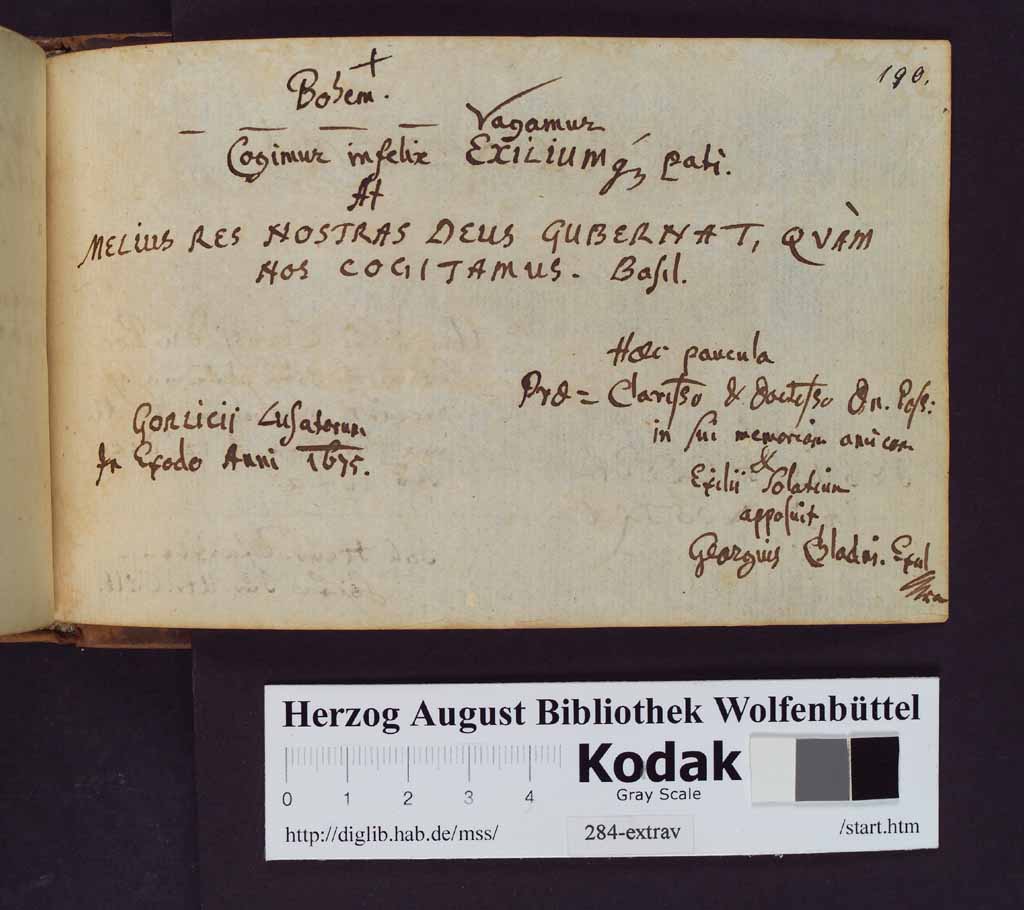 190.
Bohem.
Vagamur
Cogimur infelix EXILIUMq; pati.
At
MELIUS RES NOSTRAS DEUS GUBERNAT, QVÀM
NOS COGITAMUS. Basil.
Hæc paucula
Præ = Clariss̄o & doctiss̄o Dn. Poss:
in sui memoriam amicam
&
Exilii Solatium
apposuit
Georgius Exul
Gorlicii Lusatorum
In Exodo Anni 1675.
Herzog August Bibliothek Wolfenbüttel
Kodak
Gray Scale
0 1 2 3 4
http://diglib.hab.de/mss/
284-extrav
/start.htm